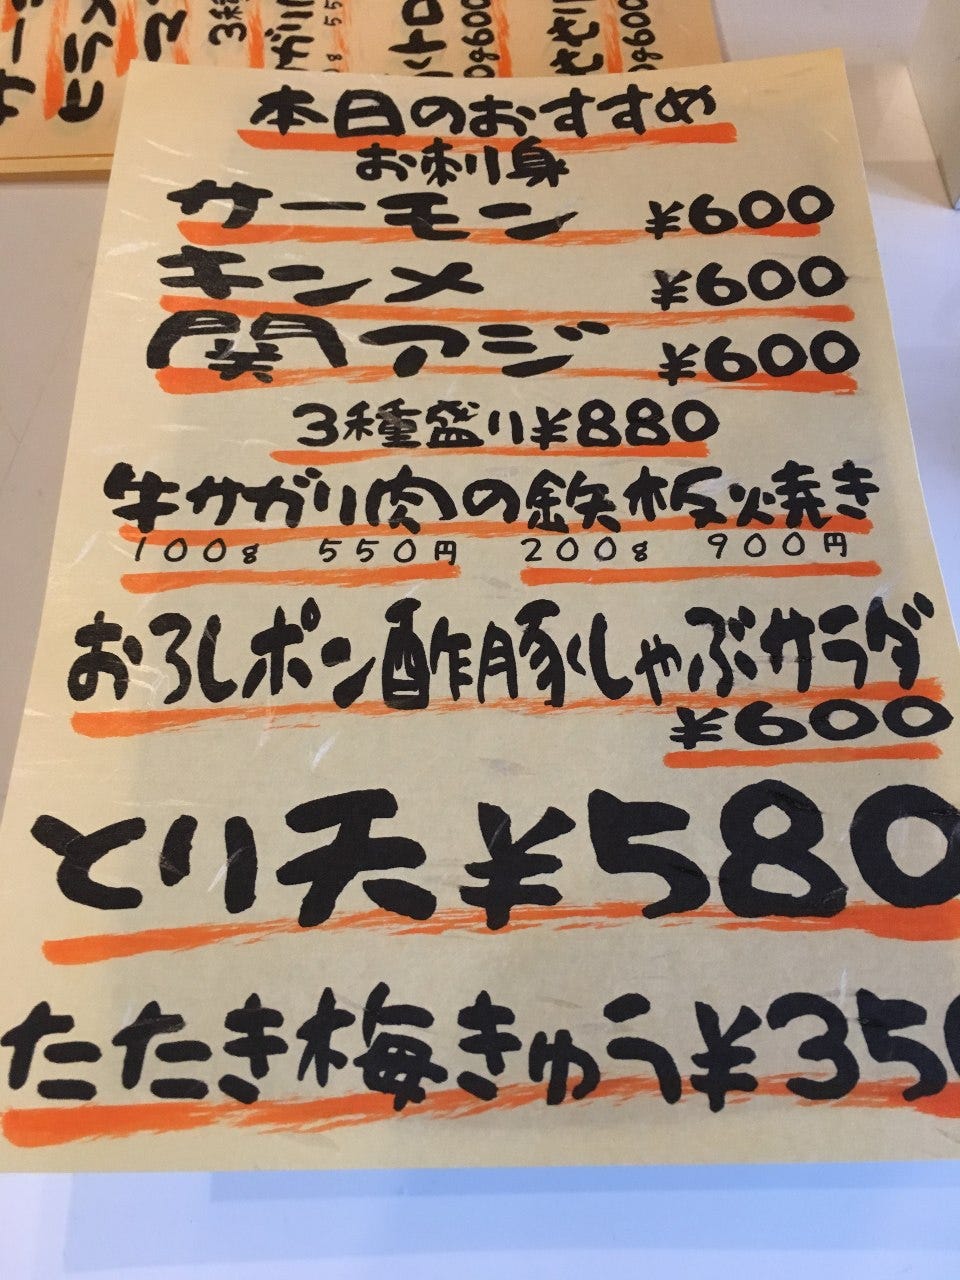 本日のおすすめ
お刺身
サーモン ¥600
キンメ ¥600
関アジ ¥600
3種盛り¥880
牛サガリ肉の鉄板焼き
100g 550円 200g 900円
おろしポン酢豚しゃぶサラダ
¥600
とり天¥580
たたき梅きゅう¥350